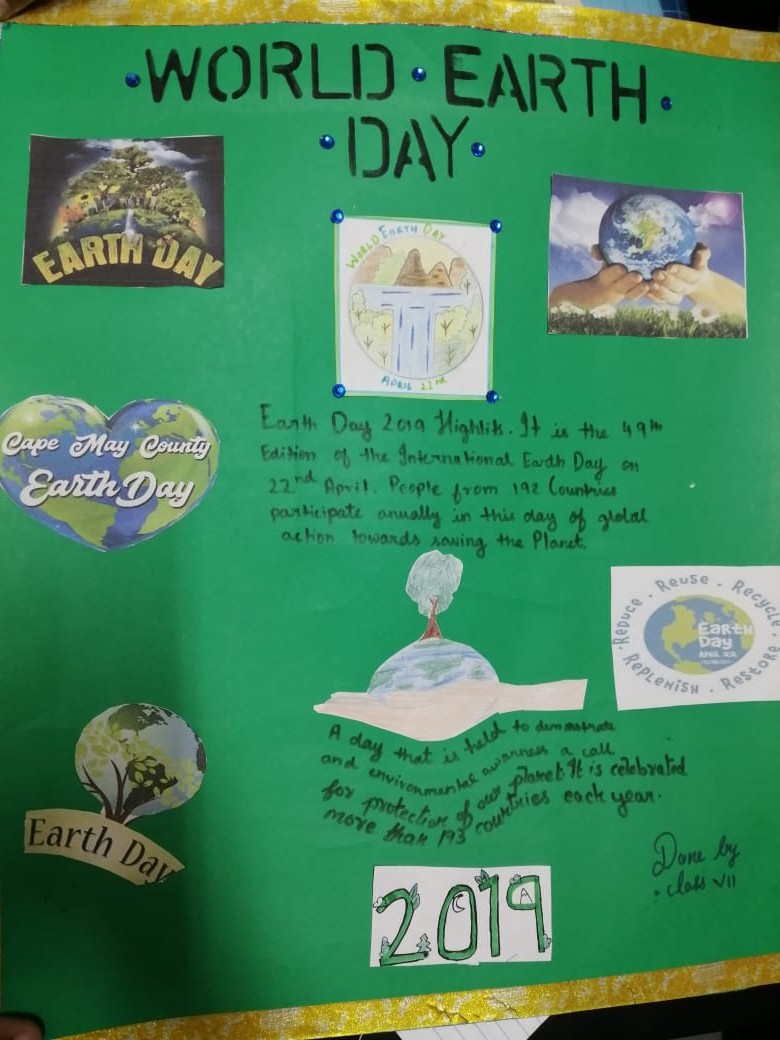 WORLD EARTH
DAY
EARTH DAY
WORLD EARTH DAY
APRIL 22nd
Cape May County
Earth Day
Earth Day 2019 Highlits. It is the 49th
Edition of the International Earth Day on
22nd April. People from 192 Countries
participate anually in this day of global
action towards saving the Planet.
Reduce · Reuse · Recycle
Replenish · Restore
Earth
Day
APRIL 22
A day that is held to demonstrate
and environmental awarness a call
for protection of our planet. It is celebrated
more than 193 countries each year.
Earth Day
Done by
class VII
2019